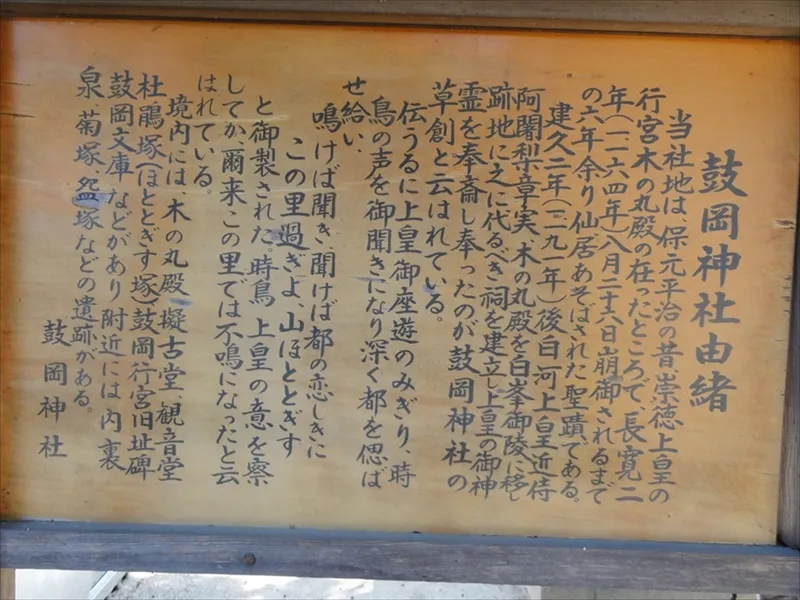 鼓岡神社由緒
当社地は、保元平治の昔、崇徳上皇の
行宮木の丸殿の在ったところで、長寛二
年(一一六四年)八月二十六日崩御されるまで
の六年余り仙居あそばされた聖蹟である。
建久二年(一一九一年)後白河上皇近侍
阿闍梨章実、木の丸殿を白峯御陵に移し
跡地に之に代るべき祠を建立し、上皇の御神
霊を奉斎し奉ったのが鼓岡神社の
草創と云はれている。
伝うるに上皇御座遊のみぎり、時
鳥の声を御聞きになり深く都を偲ば
せ給い、
鳴けば聞き、聞けば都の恋しきに
この里過ぎよ、山ほととぎす
と御製された。時鳥、上皇の意を察
してか、爾来この里では不鳴になったと云
はれている。
境内には、木の丸殿、擬古堂、観音堂
杜鵑塚(ほととぎす塚)鼓岡行宮旧址碑
鼓岡文庫などがあり附近には内裏
泉、菊塚、盌塚などの遺跡がある。
鼓岡神社